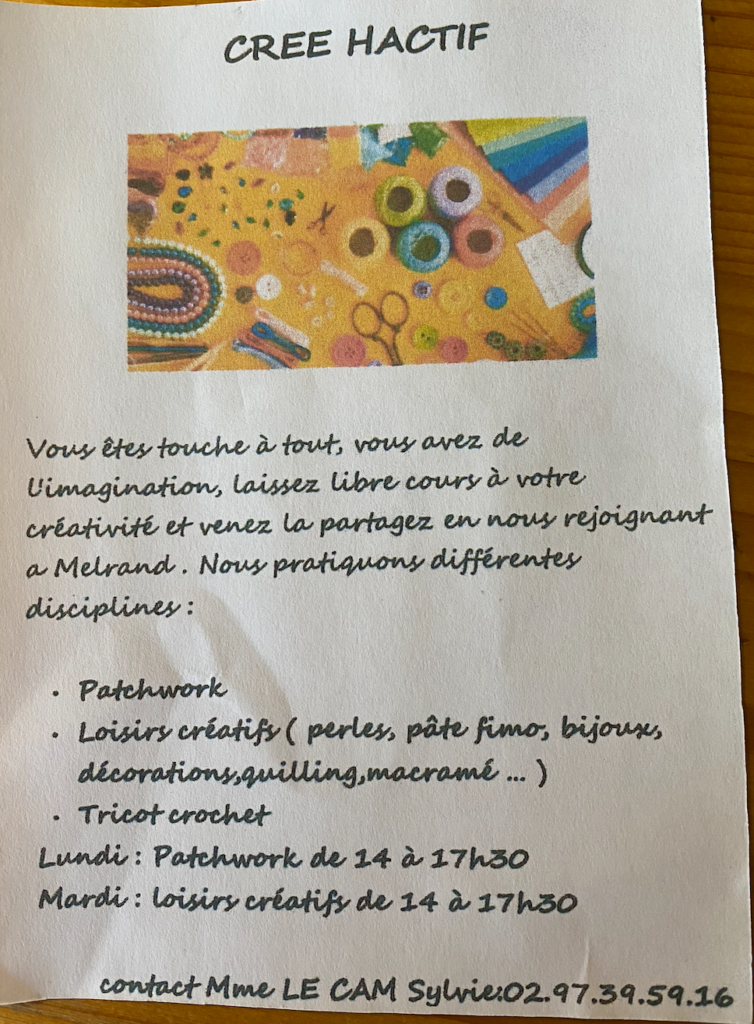 CREE HACTIF
Vous êtes touche à tout, vous avez de
l'imagination, laissez libre cours à votre
créativité et venez la partagez en nous rejoignant
a Melrand. Nous pratiquons différentes
disciplines :
• Patchwork
• Loisirs créatifs ( perles, pâte fimo, bijoux,
décorations,quilling,macramé ... )
• Tricot crochet
Lundi : Patchwork de 14 à 17h30
Mardi : loisirs créatifs de 14 à 17h30
contact Mme LE CAM Sylvie:02.97.39.59.16